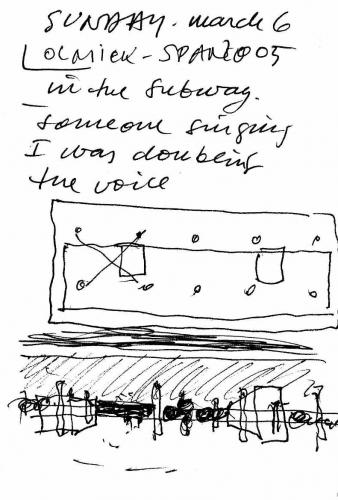 SUNDAY. march 6
in the subway.
someone singing
I was doubling
the voice